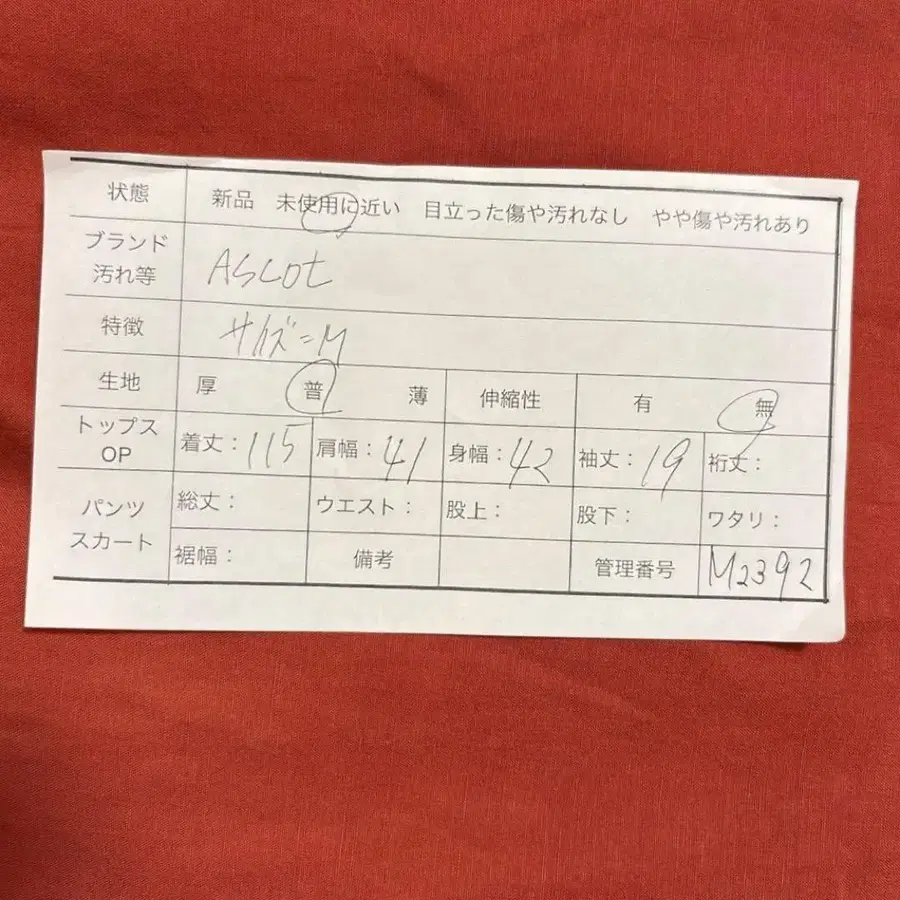 状態 新品 未使用に近い 目立った傷や汚れなし やや傷や汚れあり
ブランド
汚れ等 ASCOt
特徴 サイズ=M
生地 厚 普 薄 伸縮性 有 無
トップス
OP 着丈：115 肩幅：41 身幅：42 袖丈：19 裄丈：
パンツ
スカート 総丈： ウエスト： 股上： 股下： ワタリ：
裾幅： 備考 管理番号 M2392